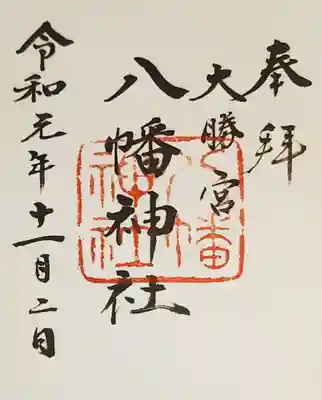 奉拝
大勝宮
八幡神社
令和元年十一月二日
八幡神社